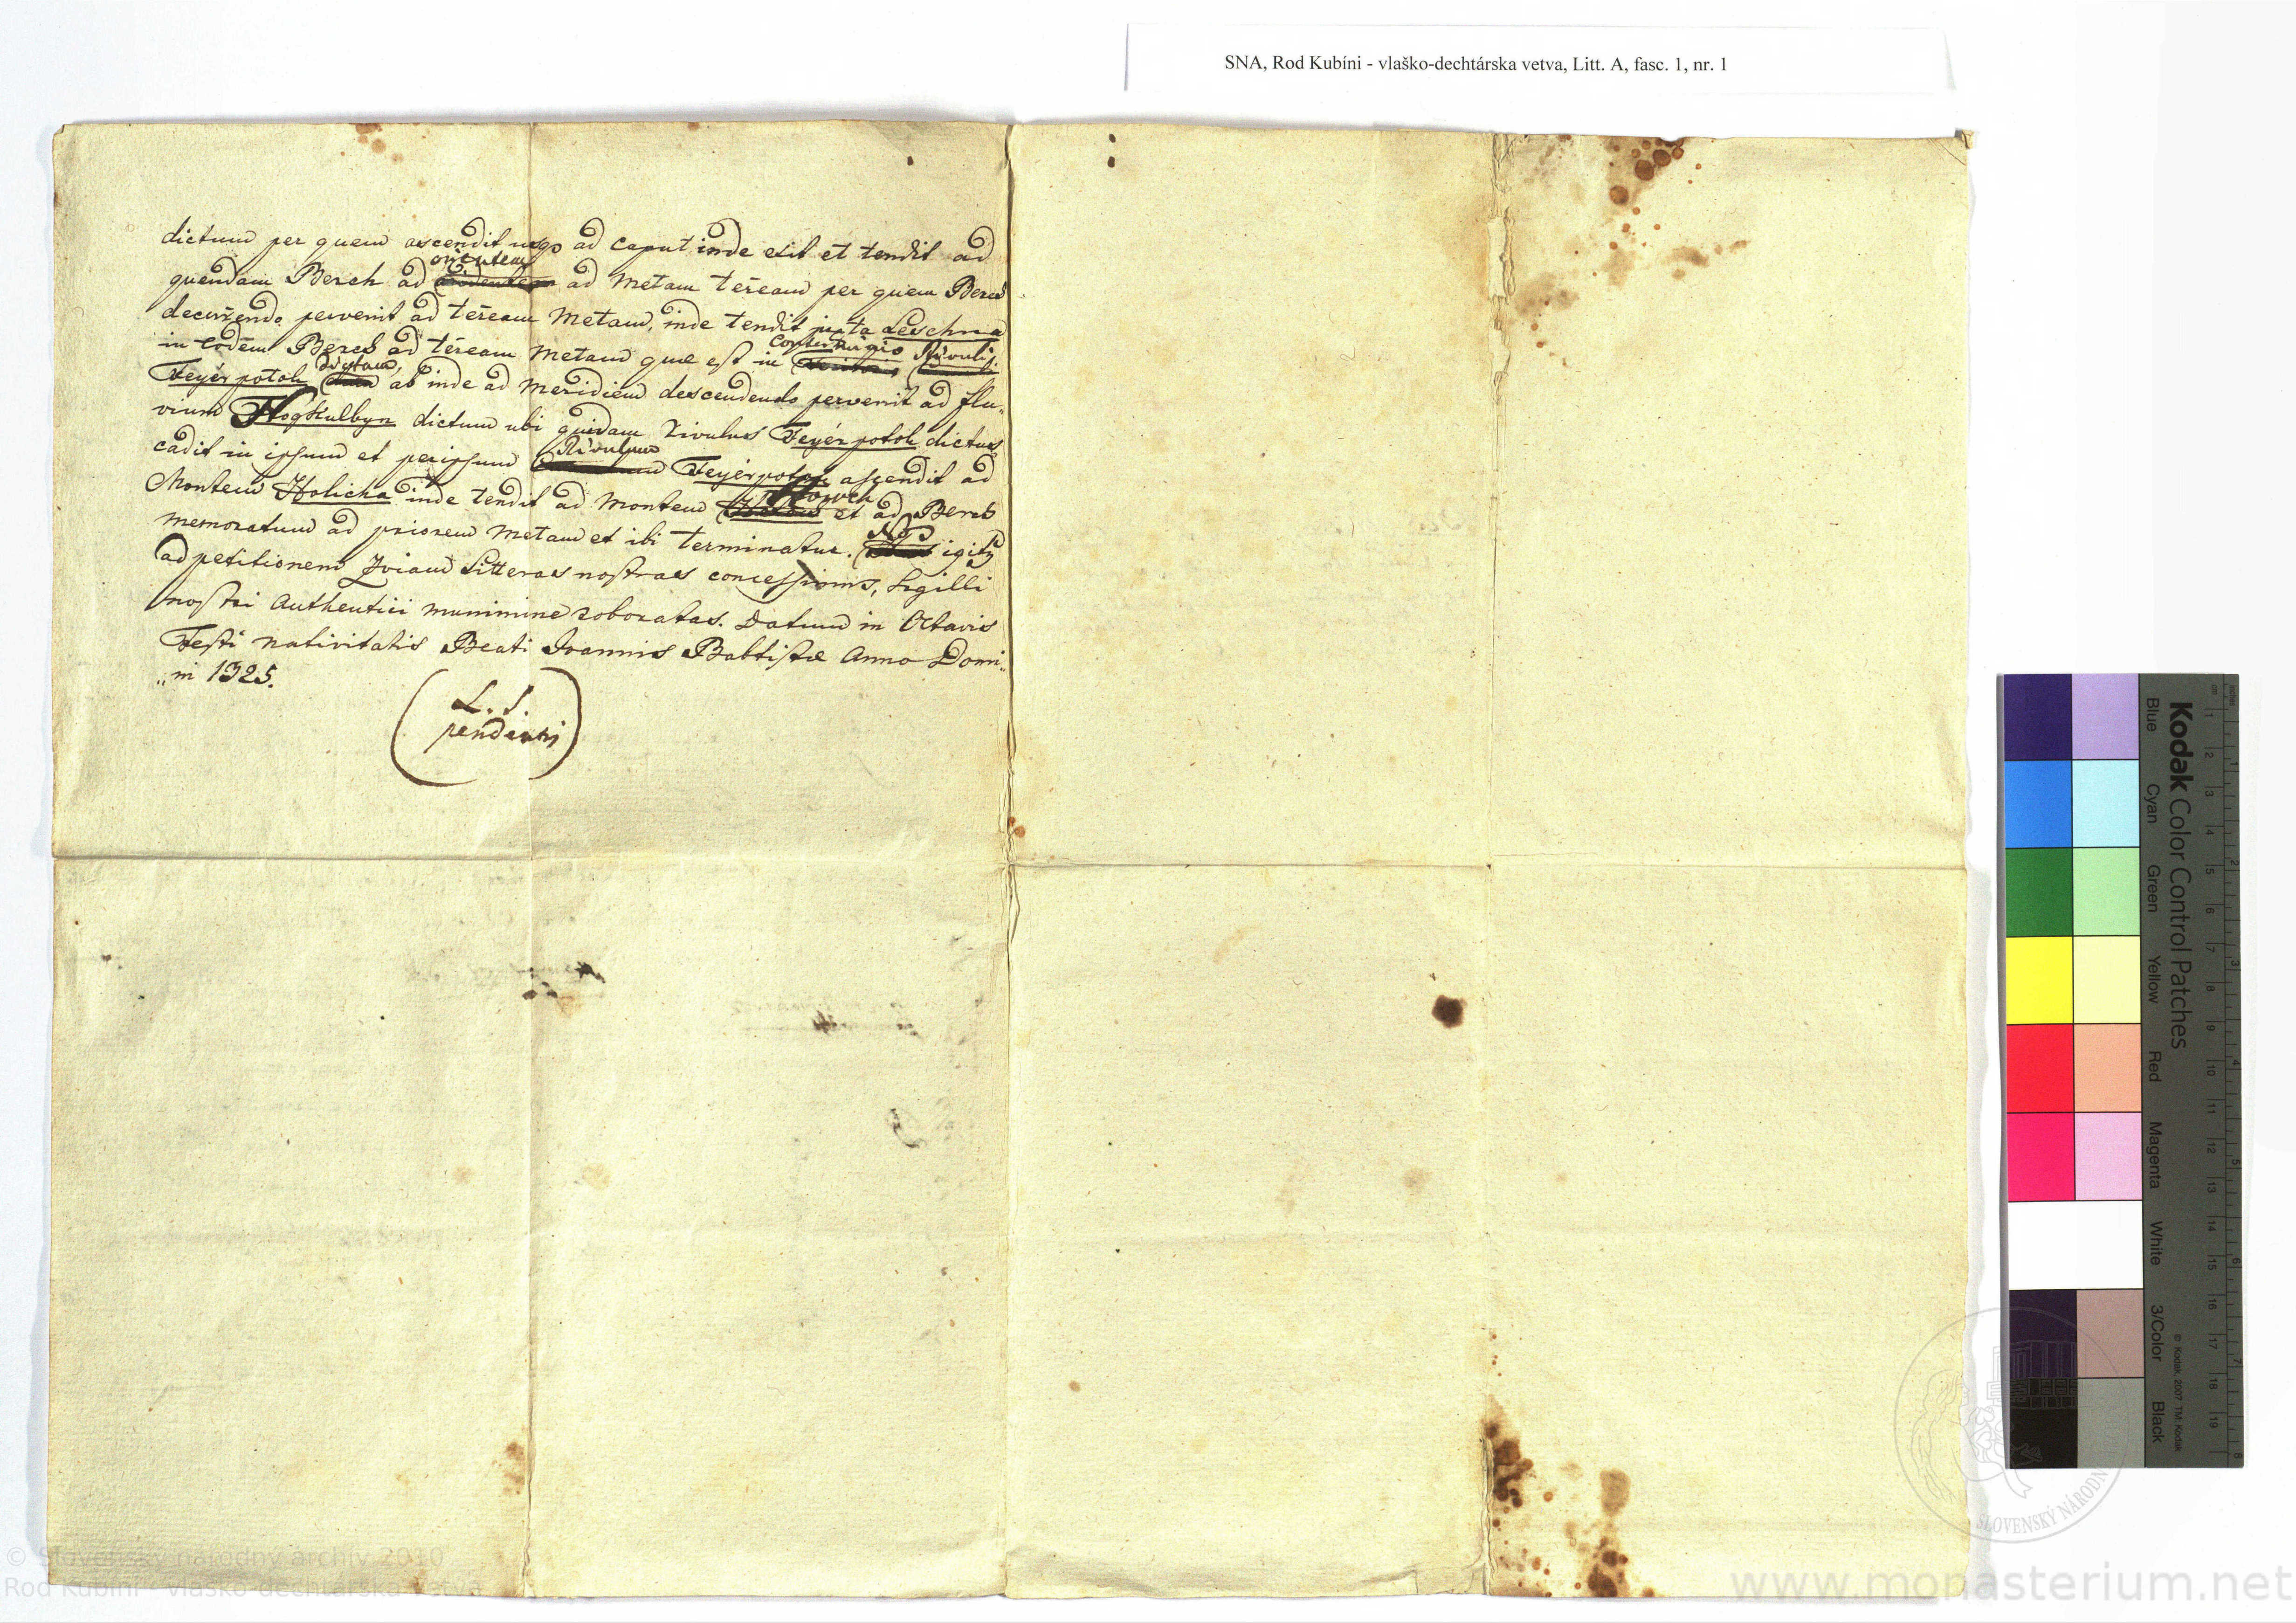 SNA, Rod Kubíni - vlaško-dechtárska vetva, Litt. A, fasc. 1, nr. 1
dictum per quem ascendit usq ad caput inde exit et tendit ad
orientem
quendam Berch ad ad Metam terream per quem Berch
decurrendo pervenit ad terream Metam, inde tendit juxta Leschna
in eodem Berch ad terream Metam que est in Conterminio Rivuli
Feyér potok dictam, ab inde ad meridiem descendendo pervenit ad flu„
vium Hogkulbyn dictum ubi quidam rivulus Feyér potok dictus
cadit in ipsum et per ipsum Rivulum Feyér potok ascendit ad
Montem Holicha inde tendit ad Montem et ad Berch
memoratum ad priorem Metam et ibi terminatur. Nos igitur
ad petitionem Litteras nostras concessimus, Sigilli
nostri Authentici munimine roboratas. Datum in Octavis
Festi nativitatis Beati Joannis Babtistæ Anno Domi„
„ni 1325.
L. S.
pendentis
Kodak Color Control Patches
Blue Cyan Green Yellow Red Magenta White 3/Color Black
© Kodak, 2007 TM: Kodak
SLOVENSKÝ NÁRODN
© Slovenský národný archív 2010
Rod Kubíni - vlaško-dechtárska vetva
www.monasterium.net